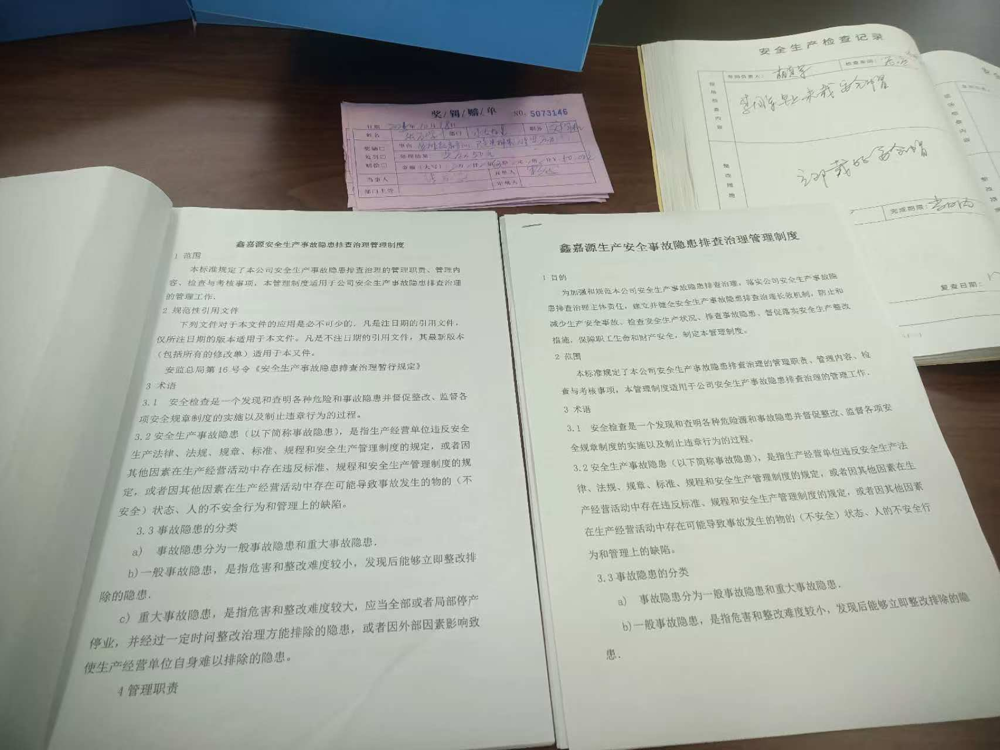 奖/罚/赔/单 NO. 5073146
日期
姓名
部门
职务
奖励□
处罚□
赔偿□
事由
当事人
部门主管
安全生产检查记录
复查日期：
鑫嘉源安全生产事故隐患排查治理管理制度
1 范围
本标准规定了本公司安全生产事故隐患排查治理的管理职责、管理内
容、检查与考核事项。本管理制度适用于公司安全生产事故隐患排查治理
的管理工作.
2 规范性引用文件
下列文件对于本文件的应用是必不可少的。凡是注日期的引用文件，
仅所注日期的版本适用于本文件。凡是不注日期的引用文件，其最新版本
（包括所有的修改单）适用于本文件。
安监总局第 16 号令《安全生产事故隐患排查治理暂行规定》
3 术语
3.1 安全检查是一个发现和查明各种危险和事故隐患并督促整改、监督各
项安全规章制度的实施以及制止违章行为的过程。
3.2 安全生产事故隐患（以下简称事故隐患），是指生产经营单位违反安全
生产法律、法规、规章、标准、规程和安全生产管理制度的规定，或者因
其他因素在生产经营活动中存在违反标准、规程和安全生产管理制度的规
定，或者因其他因素在生产经营活动中存在可能导致事故发生的物的（不
安全）状态、人的不安全行为和管理上的缺陷。
3.3 事故隐患的分类
a) 事故隐患分为一般事故隐患和重大事故隐患.
b)一般事故隐患，是指危害和整改难度较小，发现后能够立即整改排
除的隐患.
c) 重大事故隐患，是指危害和整改难度较大，应当全部或者局部停产
停业，并经过一定时间整改治理方能排除的隐患，或者因外部因素影响致
使生产经营单位自身难以排除的隐患。
4 管理职责
鑫嘉源生产安全事故隐患排查治理管理制度
1 目的
为加强和规范本公司安全生产事故隐患排查治理，落实公司安全生产事故隐
患排查治理主体责任，建立并健全安全生产事故隐患排查治理长效机制，防止和
减少生产安全事故、检查安全生产状况、排查事故隐患、督促落实安全生产整改
措施，保障职工生命和财产安全，制定本管理制度。
2 范围
本标准规定了本公司安全生产事故隐患排查治理的管理职责、管理内容、检
查与考核事项。本管理制度适用于公司安全生产事故隐患排查治理的管理工作.
3 术语
3.1 安全检查是一个发现和查明各种危险源和事故隐患并督促整改、监督各项安
全规章制度的实施以及制止违章行为的过程。
3.2 安全生产事故隐患（以下简称事故隐患），是指生产经营单位违反安全生产法
律、法规、规章、标准、规程和安全生产管理制度的规定，或者因其他因素在生
产经营活动中存在违反标准、规程和安全生产管理制度的规定，或者因其他因素
在生产经营活动中存在可能导致事故发生的物的（不安全）状态、人的不安全行
为和管理上的缺陷。
3.3 事故隐患的分类
a) 事故隐患分为一般事故隐患和重大事故隐患.
b)一般事故隐患，是指危害和整改难度较小、发现后能够立即整改排除的隐
患.